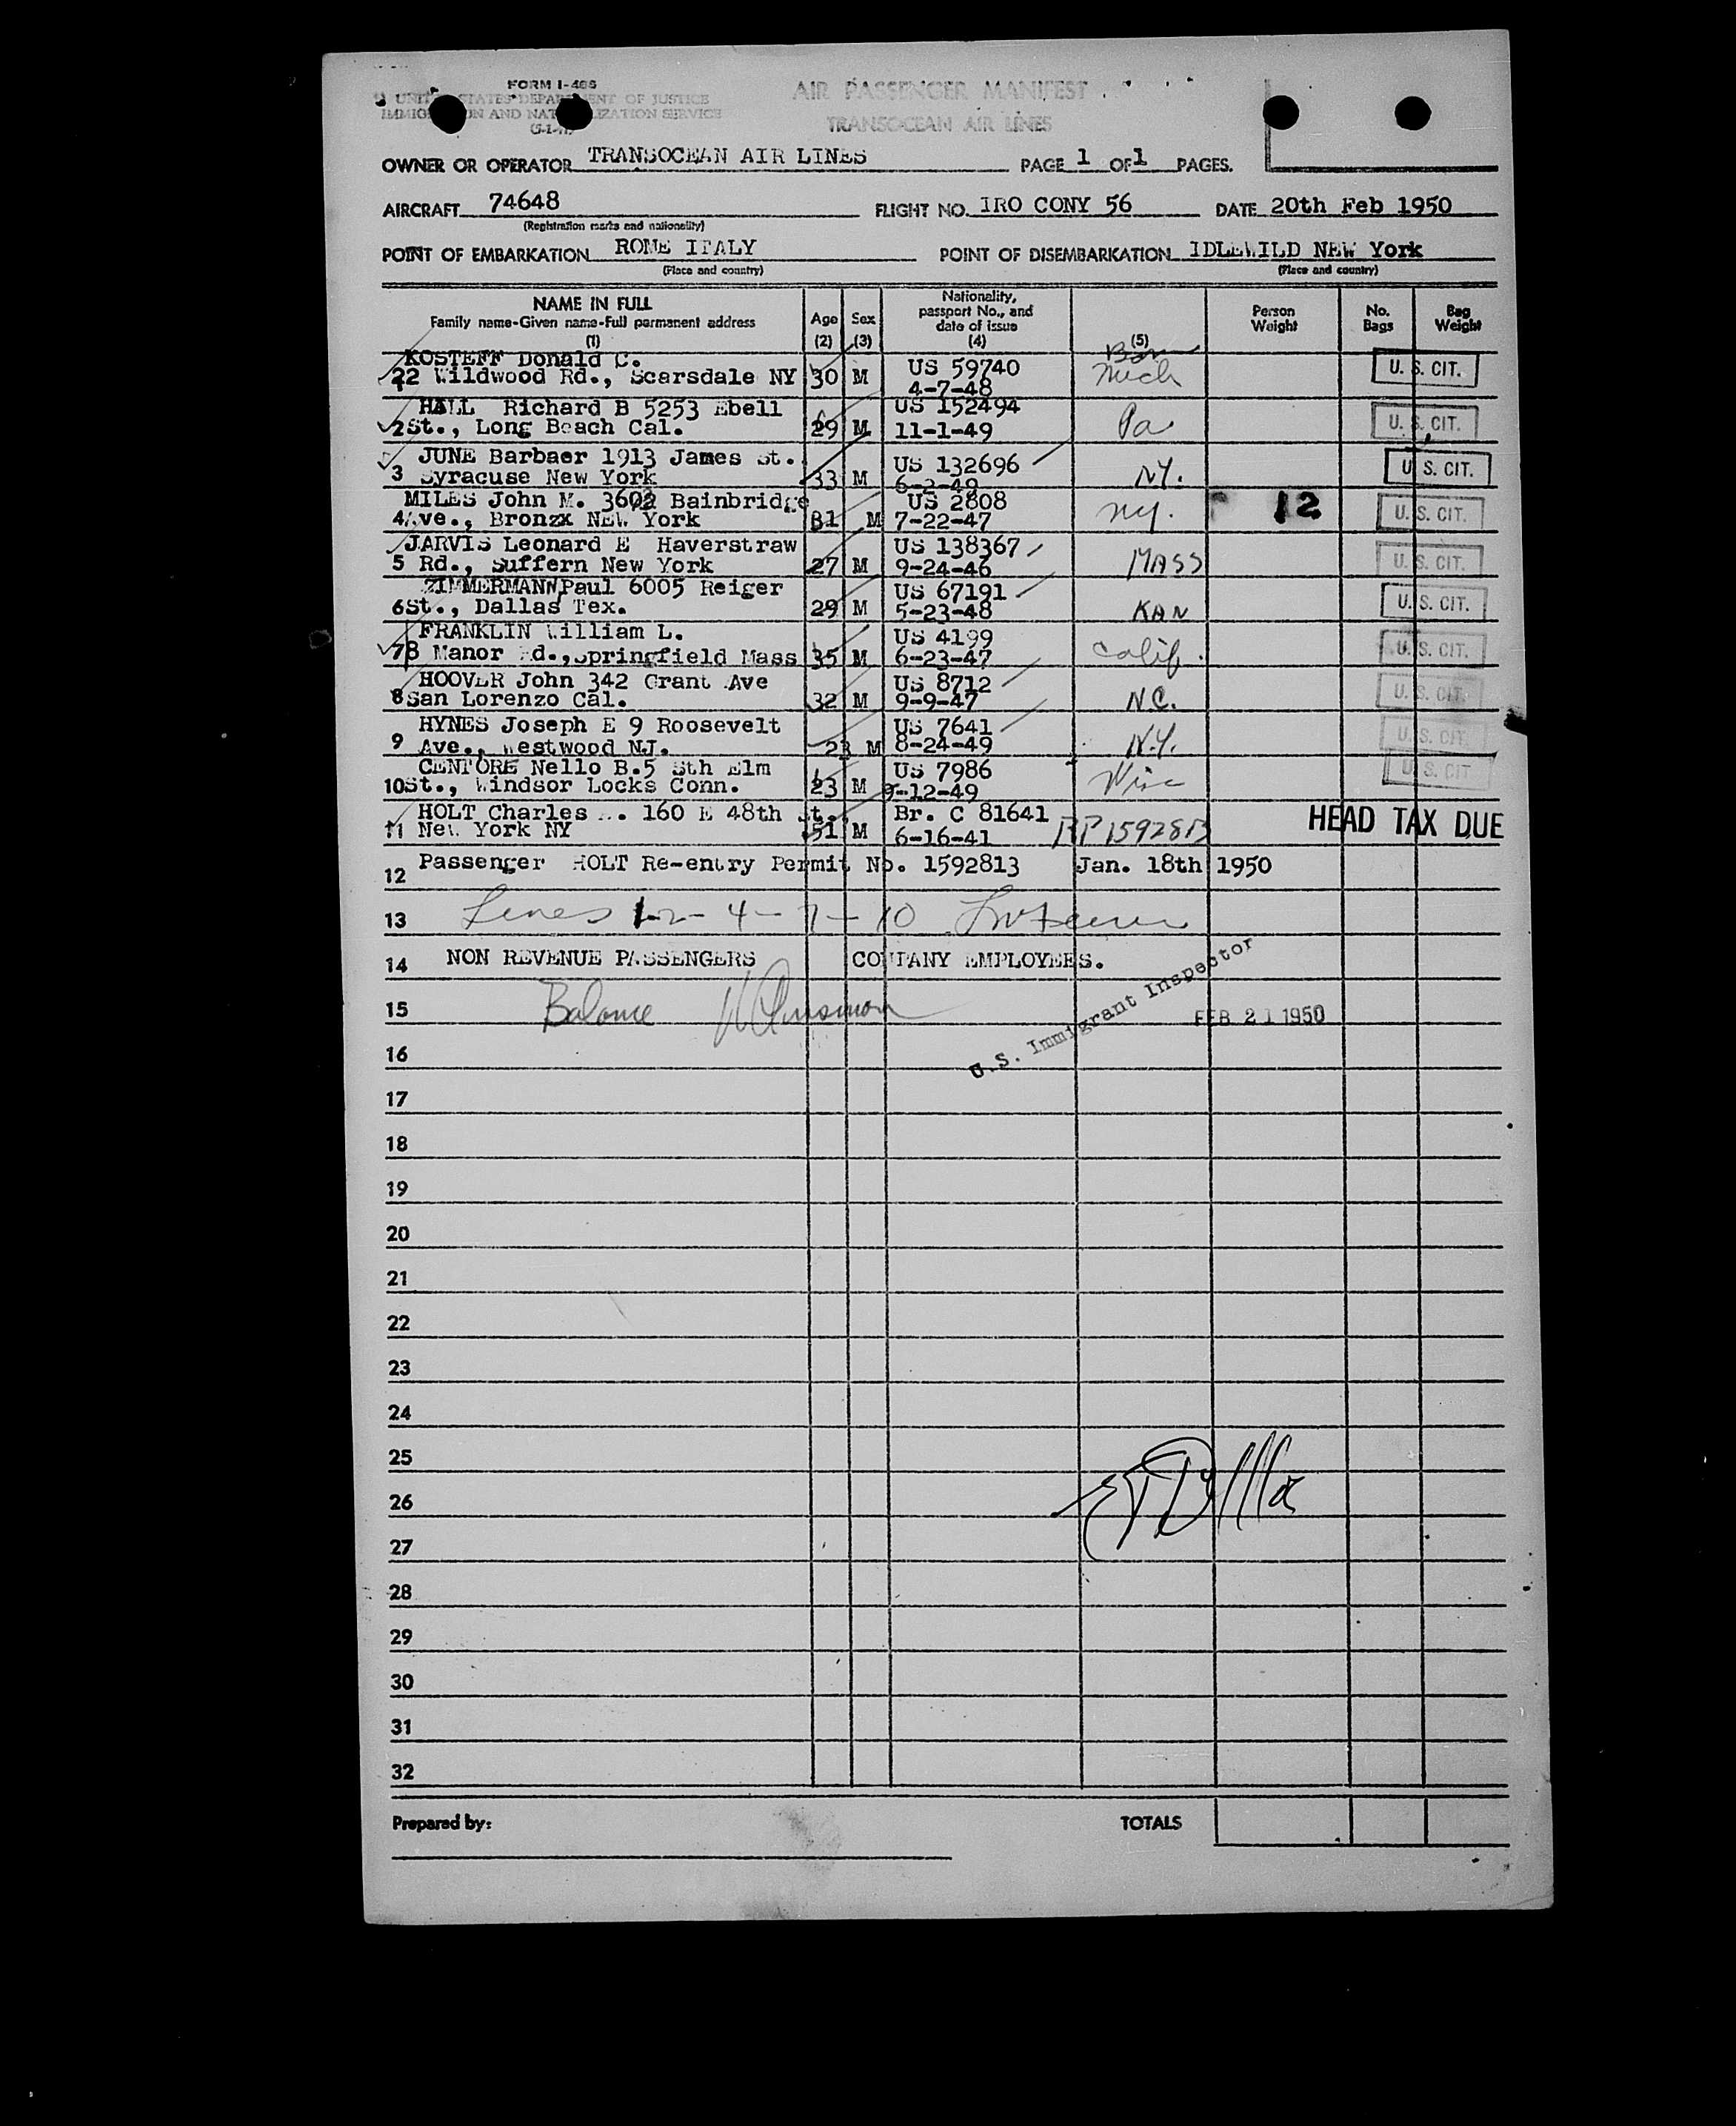 FORM I-466
UNITED STATES DEPARTMENT OF JUSTICE
IMMIGRATION AND NATURALIZATION SERVICE
AIR PASSENGER MANIFEST
TRANSOCEAN AIR LINES
OWNER OR OPERATOR TRANSOCEAN AIR LINES PAGE 1 OF 1 PAGES.
AIRCRAFT 74648 FLIGHT NO. IRO CONY 56 DATE 20th Feb 1950
(Registration marks and nationality)
POINT OF EMBARKATION ROME ITALY POINT OF DISEMBARKATION IDLEWILD NEW York
(Place and country) (Place and country)
NAME IN FULL
Family name-Given name-Full permanent address
(1)
Age
(2)
Sex
(3)
Nationality,
passport No., and
date of issue
(4)
(5)
Born
Person
Weight
No.
Bags
Bag
Weight
KOSTEFF Donald C. US 59740
22 Wildwood Rd., Scarsdale NY 30 M 4-7-48 Mich U. S. CIT.
HALL Richard B 5253 Ebell US 152494
2 St., Long Beach Cal. 29 M 11-1-49 Pa U. S. CIT.
JUNE Barbaer 1913 James St. US 132696
3 Syracuse New York 33 M 6-2-49 N.Y. U. S. CIT.
MILES John M. 3602 Bainbridge US 2808
4 Ave., Bronzx NEW York 31 M 7-22-47 NY. 12 U. S. CIT.
JARVIS Leonard E Haverstraw US 138367
5 Rd., Suffern New York 27 M 9-24-46 MASS U. S. CIT.
ZIMMERMANN Paul 6005 Reiger US 67191
6 St., Dallas Tex. 29 M 5-23-48 KAN U. S. CIT.
FRANKLIN William L. US 4199
7 8 Manor Rd., Springfield Mass 35 M 6-23-47 Calif. U. S. CIT.
HOOVER John 342 Grant Ave US 8712
8 San Lorenzo Cal. 32 M 9-9-47 N.C. U. S. CIT.
HYNES Joseph E 9 Roosevelt US 7641
9 Ave., Westwood NJ. 23 M 8-24-49 N.Y. U. S. CIT.
CENTORE Nello B. 5 Sth Elm US 7986
10 St., Windsor Locks Conn. 23 M 9-12-49 Wisc U. S. CIT.
HOLT Charles 160 E 48th St., Br. C 81641
11 New York NY 51 M 6-16-41 RP 1592813 HEAD TAX DUE
12 Passenger HOLT Re-entry Permit No. 1592813 Jan. 18th 1950
13 Lines 1-2-4-7-10
14 NON REVENUE PASSENGERS COMPANY EMPLOYEES.
15 Balance
U.S. Immigrant Inspector
FEB 21 1950
16
17
18
19
20
21
22
23
24
25
26
27
28
29
30
31
32
Prepared by: TOTALS